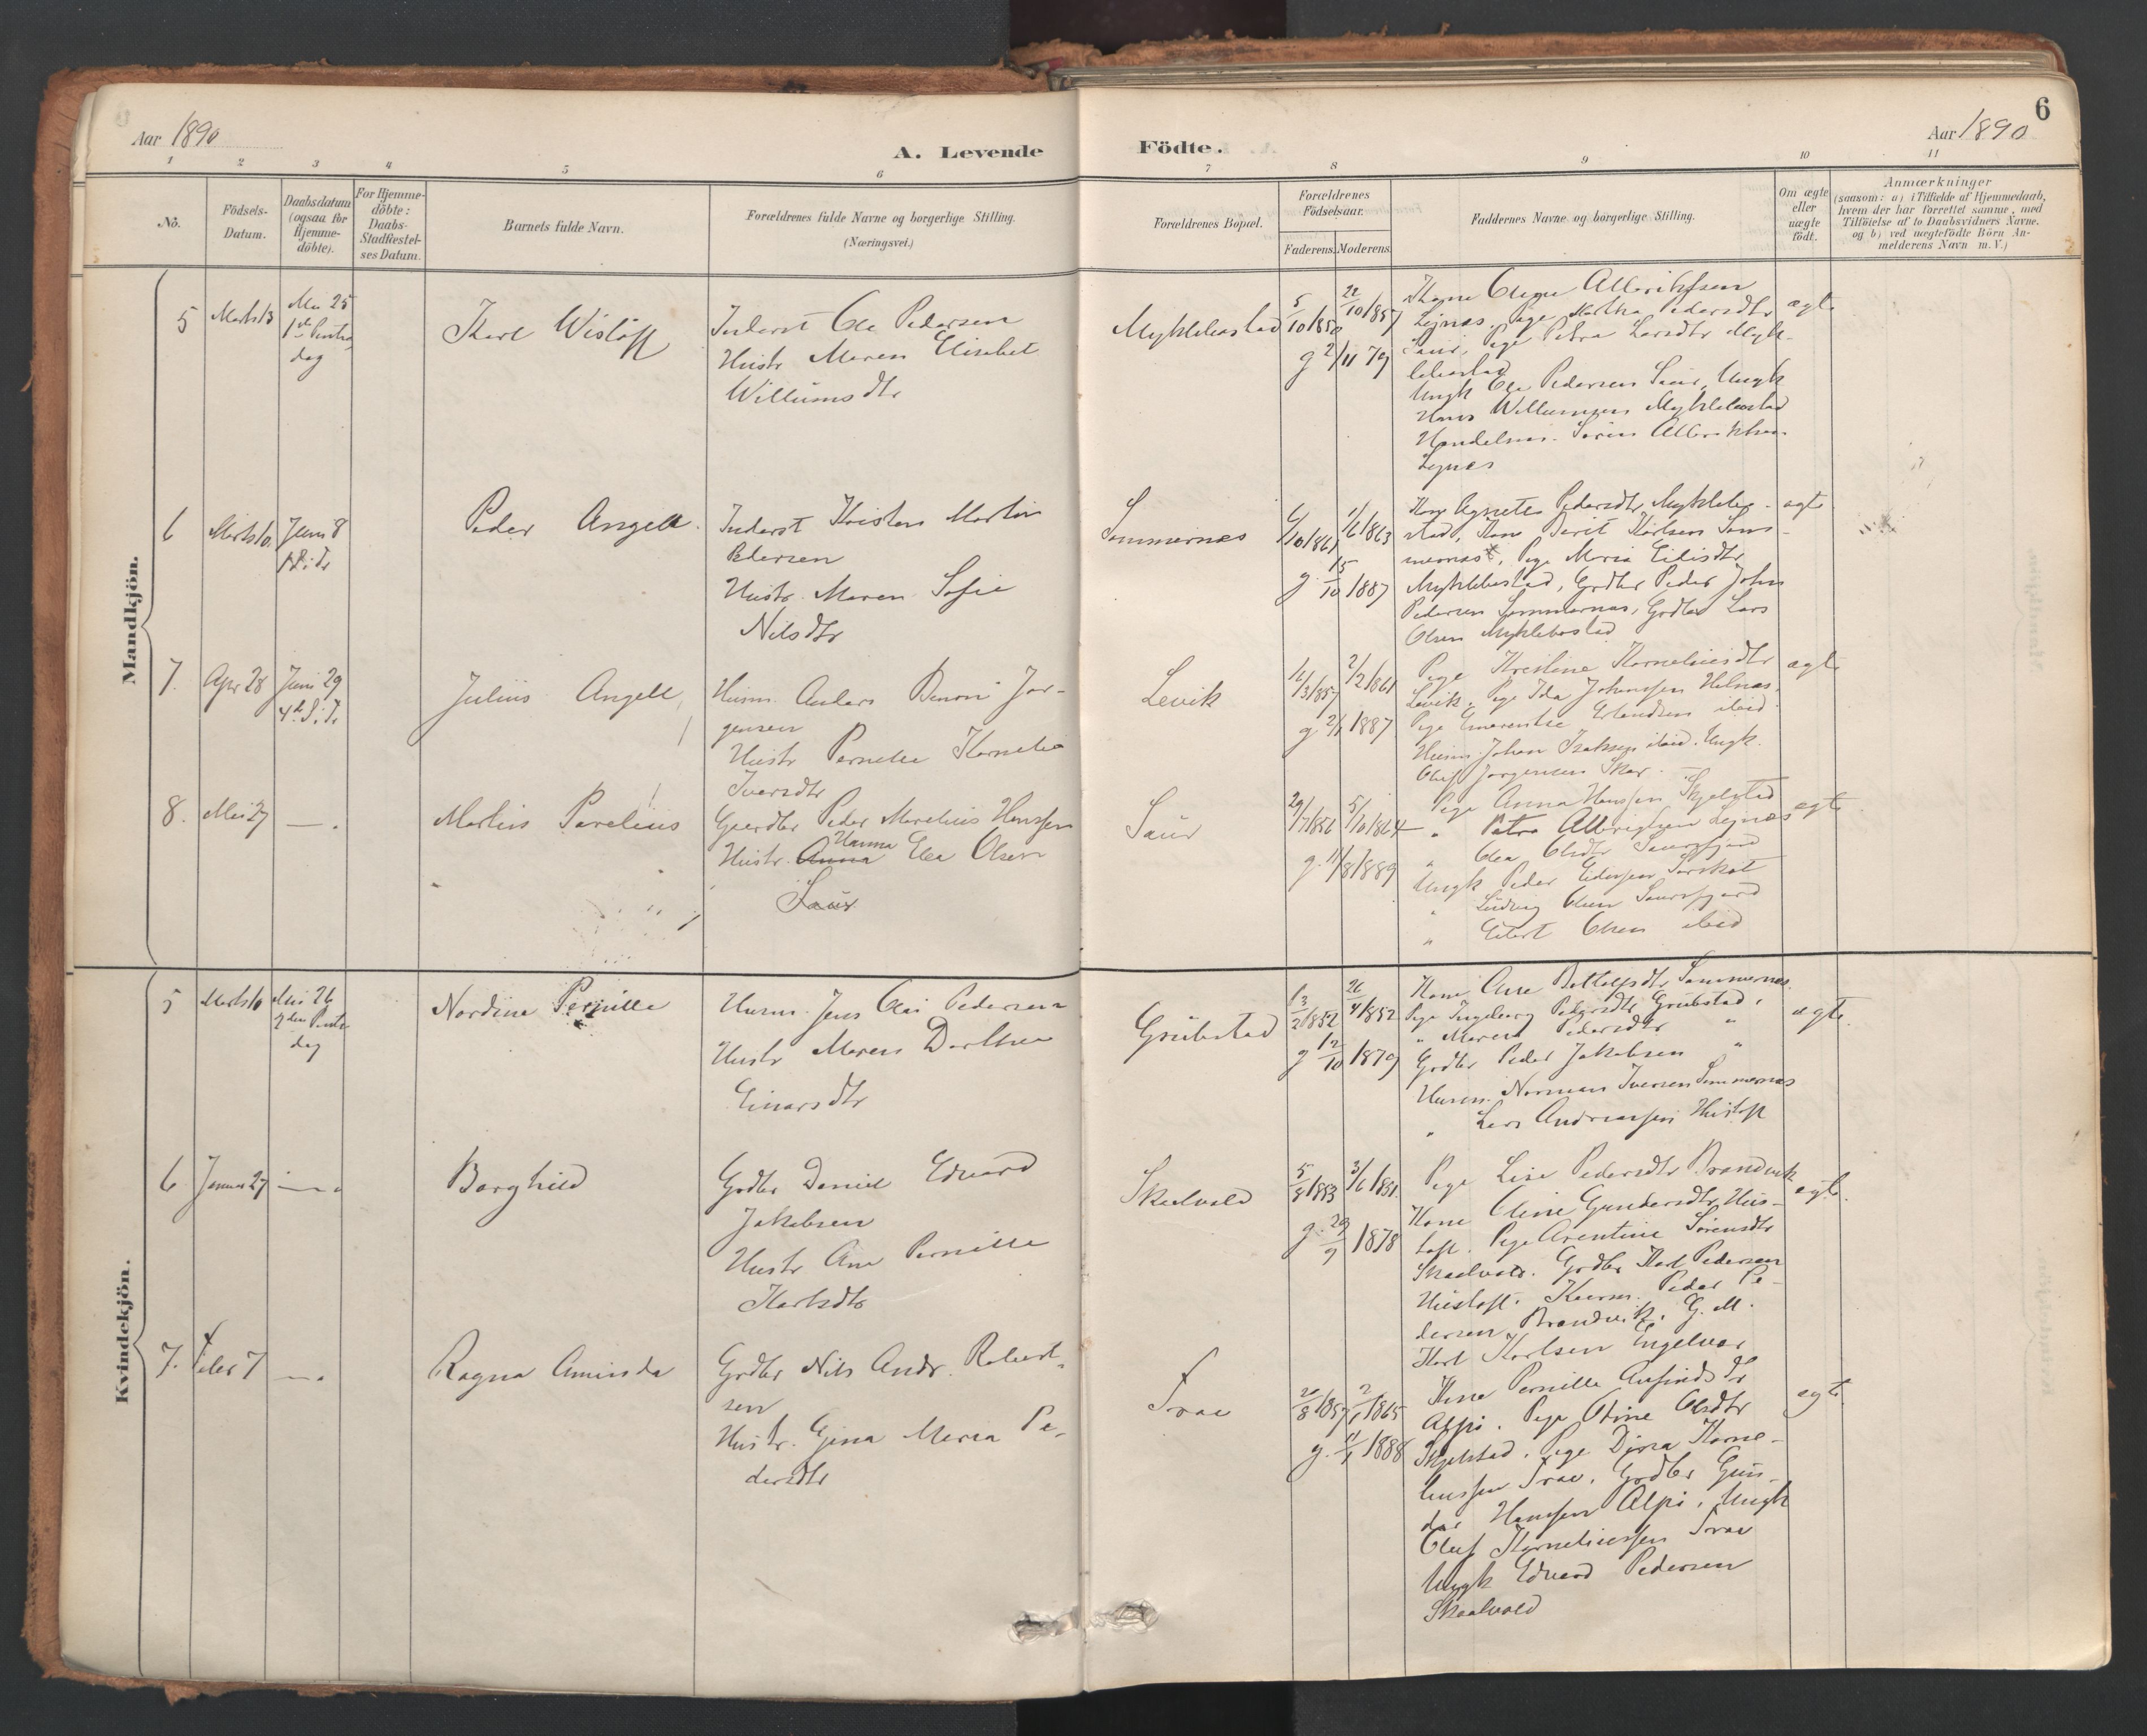 Aar 1890
A. Levende
Födte.
Aar 1890
6
1 2 3 4 5 6 7 8 9 10 11
No.
Födsels-
Datum.
Daabsdatum
(ogsaa for
Hjemme-
döbte).
For Hjemme-
döbte:
Daabs-
Stadfæstel-
ses Datum.
Barnets fulde Navn.
Forældrenes fulde Navne og borgerlige Stilling.
(Næringsvei.)
Forældrenes Bopæl.
Forældrenes
Födselsaar.
Faderens.
Moderens.
Faddernes Navne og borgerlige Stilling.
Om ægte
eller
uægte
födt.
Anmærkninger
(saasom: a) i Tilfælde af Hjemmedaab,
hvem der har forrettet samme, med
Tilföielse af to Daabsvidners Navne,
og b) ved uægtefödte Börn An-
melderens Navn m. V.)
Mandkjön.
5
Marts 13
Mai 25
1ste Pintse
dag
Karl Wislöff
Inderst Ole Pedersen
Hustr Maren Elisabet
Willumsdtr
Myklebostad
5/10 1850
22/10 1857
g 2/11 79
Lejnes, Pige Martha Pedersdtr
Saur, Pige Petra Larsdtr Myk-
lebostad
Ungk Ole Pedersen Saur, Ungk
Hans Willumsen Myklebostad
Handelsm. Sören Albriktsen
Lejnes
ægte
6
Marts 10
Juni 8
1 S. i Tr
Peder Angell.
Inderst Kristen Martin
Pedersen
Hustr. Maren Sofie
Nilsdtr
Sommernes
6/10 1861
1/6 1863
g. 15/10 1887
Kone Agnete Pedersdtr Myklebo-
stad, Kone Berit Karlsen Som-
mernes, Pige Maria Eilisdtr
Myklebostad, Grdbr Peder John
Pedersen Sommernes, Grdbr Lars
Olsen Myklebostad
ægte
7.
Apr 28
Juni 29
4de S. i Tr
Julius Angell
Husm. Anders Benoni Jör-
gensen
Hustr Pernille Kornelia
Iversdtr
Levik
2/2 1861
g 2/1 1887
Pige Kristine Korneliusdtr
Levik, Pige Ida Johansen Helnes,
Pige Emerentse Erlandsen ibid.
Husm. Johan Isaksen ibid. Ungk.
Oluf Jörgensen Skar.
ægte
8.
Mai 27
— .
Martin Parelius
Gaardbr Peder Marelius Hansen
Hanna
Hustr. Anna Elea Olsen
Saur
Saur
29/7 1856
5/10 1864
g. 11/8 1889
Pige Anna Hansen Skjelstad
" Petra Albrigtsen Lejnes
" Olea Olsdtr Saursfjord
Ungk Peder Edvardsen Sörskot
" Ludvig Olsen Saursfjord
" Edvart Olsen ibid
ægte
Kvindekjön.
5
Marts 10
Mai 26
2den Pintse
dag
Nordine Pernille
Husm. Jens Elai Pedersen
Hustr Maren Dorthea
Einarsdtr
Grübstad
13/2 1852
26/4 1852
g 12/10 1879
Kone Ane Bottolfsdtr Sommernes.
Pige Ingeborg Pedersdtr Grübstad,
" Maren Pedersdtr "
Grdbr Peder Jakobsen "
Husm. Norman Iversen Sommernes
" Lars Andreassen Hustoft
ægte.
6.
Januar 27
— .
Borghild
Grdbr Daniel Edvard
Jakobsen
Hustr Ane Pernille
Karlsdtr
Skaalvold
5/8 1853
3/6 1851.
g. 29/9 1878
Pige Lise Pedersdtr Brandvik
Kone Oline Gundersdtr Hus-
toft. Pige Arentine Sörensdtr
Skaalvold. Grdbr Karl Pedersen
Hustoft. Husm. Peder Pe-
dersen Brandvik, G. M.
Karl Karlsen Engelvær
ægte.
7.
Febr 7
— .
Ragna Aminda
Grdbr Nils Andr. Robert-
sen
Hustr. Gjina Maria Pe-
dersdtr
Tvae
20/8 1857
2/1 1865
g. 11/1 1888
Kone Pernille Arfindsdtr
Alpi. Pige Oline Olsdtr
Skjelstad. Pige Dina Korne-
liussen Tvae. Grdbr Gun-
dar Hansen Alpi. Ungk
Oluf Korneliussen Tvae
Ungk Edvard Pedersen
Skaalvold
ægte